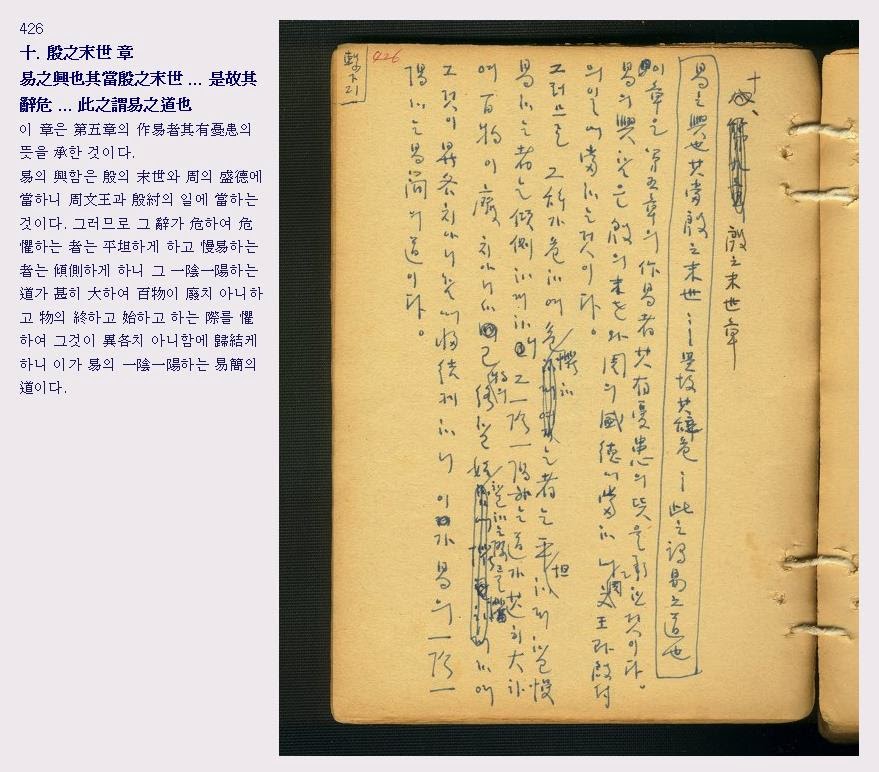 426
十. 殷之末世 章
易之興也其當殷之末世 ... 是故其
辭危 ... 此之謂易之道也
이 章은 第五章의 作易者其有憂患의
뜻을 承한 것이다.
易의 興함은 殷의 末世와 周의 盛德에
當하니 周文王과 殷紂의 일에 當하는
것이다. 그러므로 그 辭가 危하여 危
懼하는 者는 平坦하게 하고 慢易하는
者는 傾側하게 하니 그 一陰一陽하는
道가 甚히 大하여 百物이 廢치 아니하
고 物의 終하고 始하고 하는 際를 懼
하여 그것이 異咎치 아니함에 歸結케
하니 이가 易의 一陰一陽하는 易簡의
道이다.
426
繫下21
十、
殷之末世章
易之興也其當殷之末世 ... 是故其辭危 ... 此之謂易之道也
이 章은 第五章의 作易者其有憂患의 뜻을 承한 것이다.
易의 興함은 殷의 末世와 周의 盛德에 當하니 周文王과 殷紂
의 일에 當하는 것이다.
그러므로 그 辭가 危하여 危懼하는 者는 平坦하게 하고 慢
易하는 者는 傾側하게 하니 그 一陰一陽하는 道가 甚히 大하
여 百物이 廢치 아니하고 物의 終하고 始하고 하는 際를 懼하여
그것이 異咎치 아니함에 歸結케 하니 이가 易의 一陰一
陽하는 易簡의 道이다.